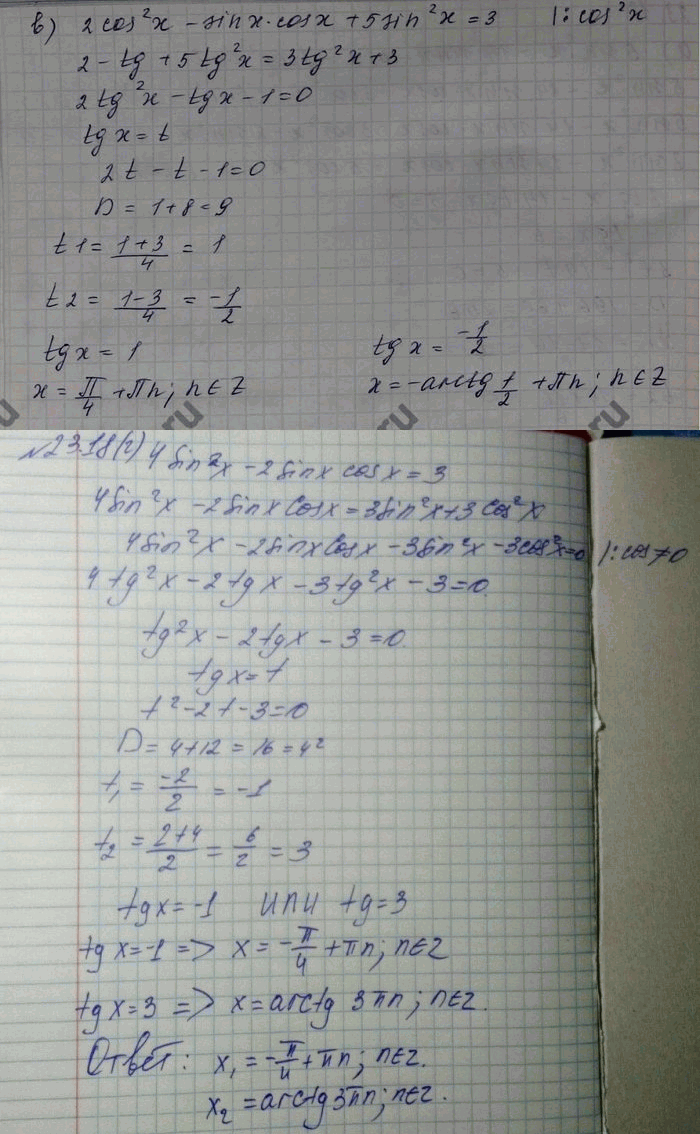 в) 2cos²x - sinx·cosx + 5sin²x = 3 |:cos²x
2 - tg + 5tg²x = 3tg²x + 3
2tg²x - tgx - 1 = 0
tgx = t
2t - t - 1 = 0
D = 1+8 = 9
t1 = (1+3)/4 = 1
t2 = (1-3)/4 = -1/2
tgx = 1 tgx = -1/2
x = π/4 + πn; n∈Z x = -arctg 1/2 + πn; n∈Z
ru ru
№23.18(г) 4sin²x - 2sinx cosx = 3
4sin²x - 2sinx cosx = 3sin²x + 3cos²x
4sin²x - 2sinx cosx - 3sin²x - 3cos²x = 0 |:cos≠0
4tg²x - 2tgx - 3tg²x - 3 = 0
tg²x - 2tgx - 3 = 0
tgx = t
t² - 2t - 3 = 0
D = 4+12 = 16 = 4²
t₁ = -2/2 = -1
t₂ = (2+4)/2 = 6/2 = 3
tgx = -1 или tg = 3
tgx = -1 => x = -π/4 + πn; n∈Z
tgx = 3 => x = arctg 3πn; n∈Z.
Ответ: x₁ = -π/4 + πn; n∈Z.
x₂ = arctg 3πn; n∈Z.